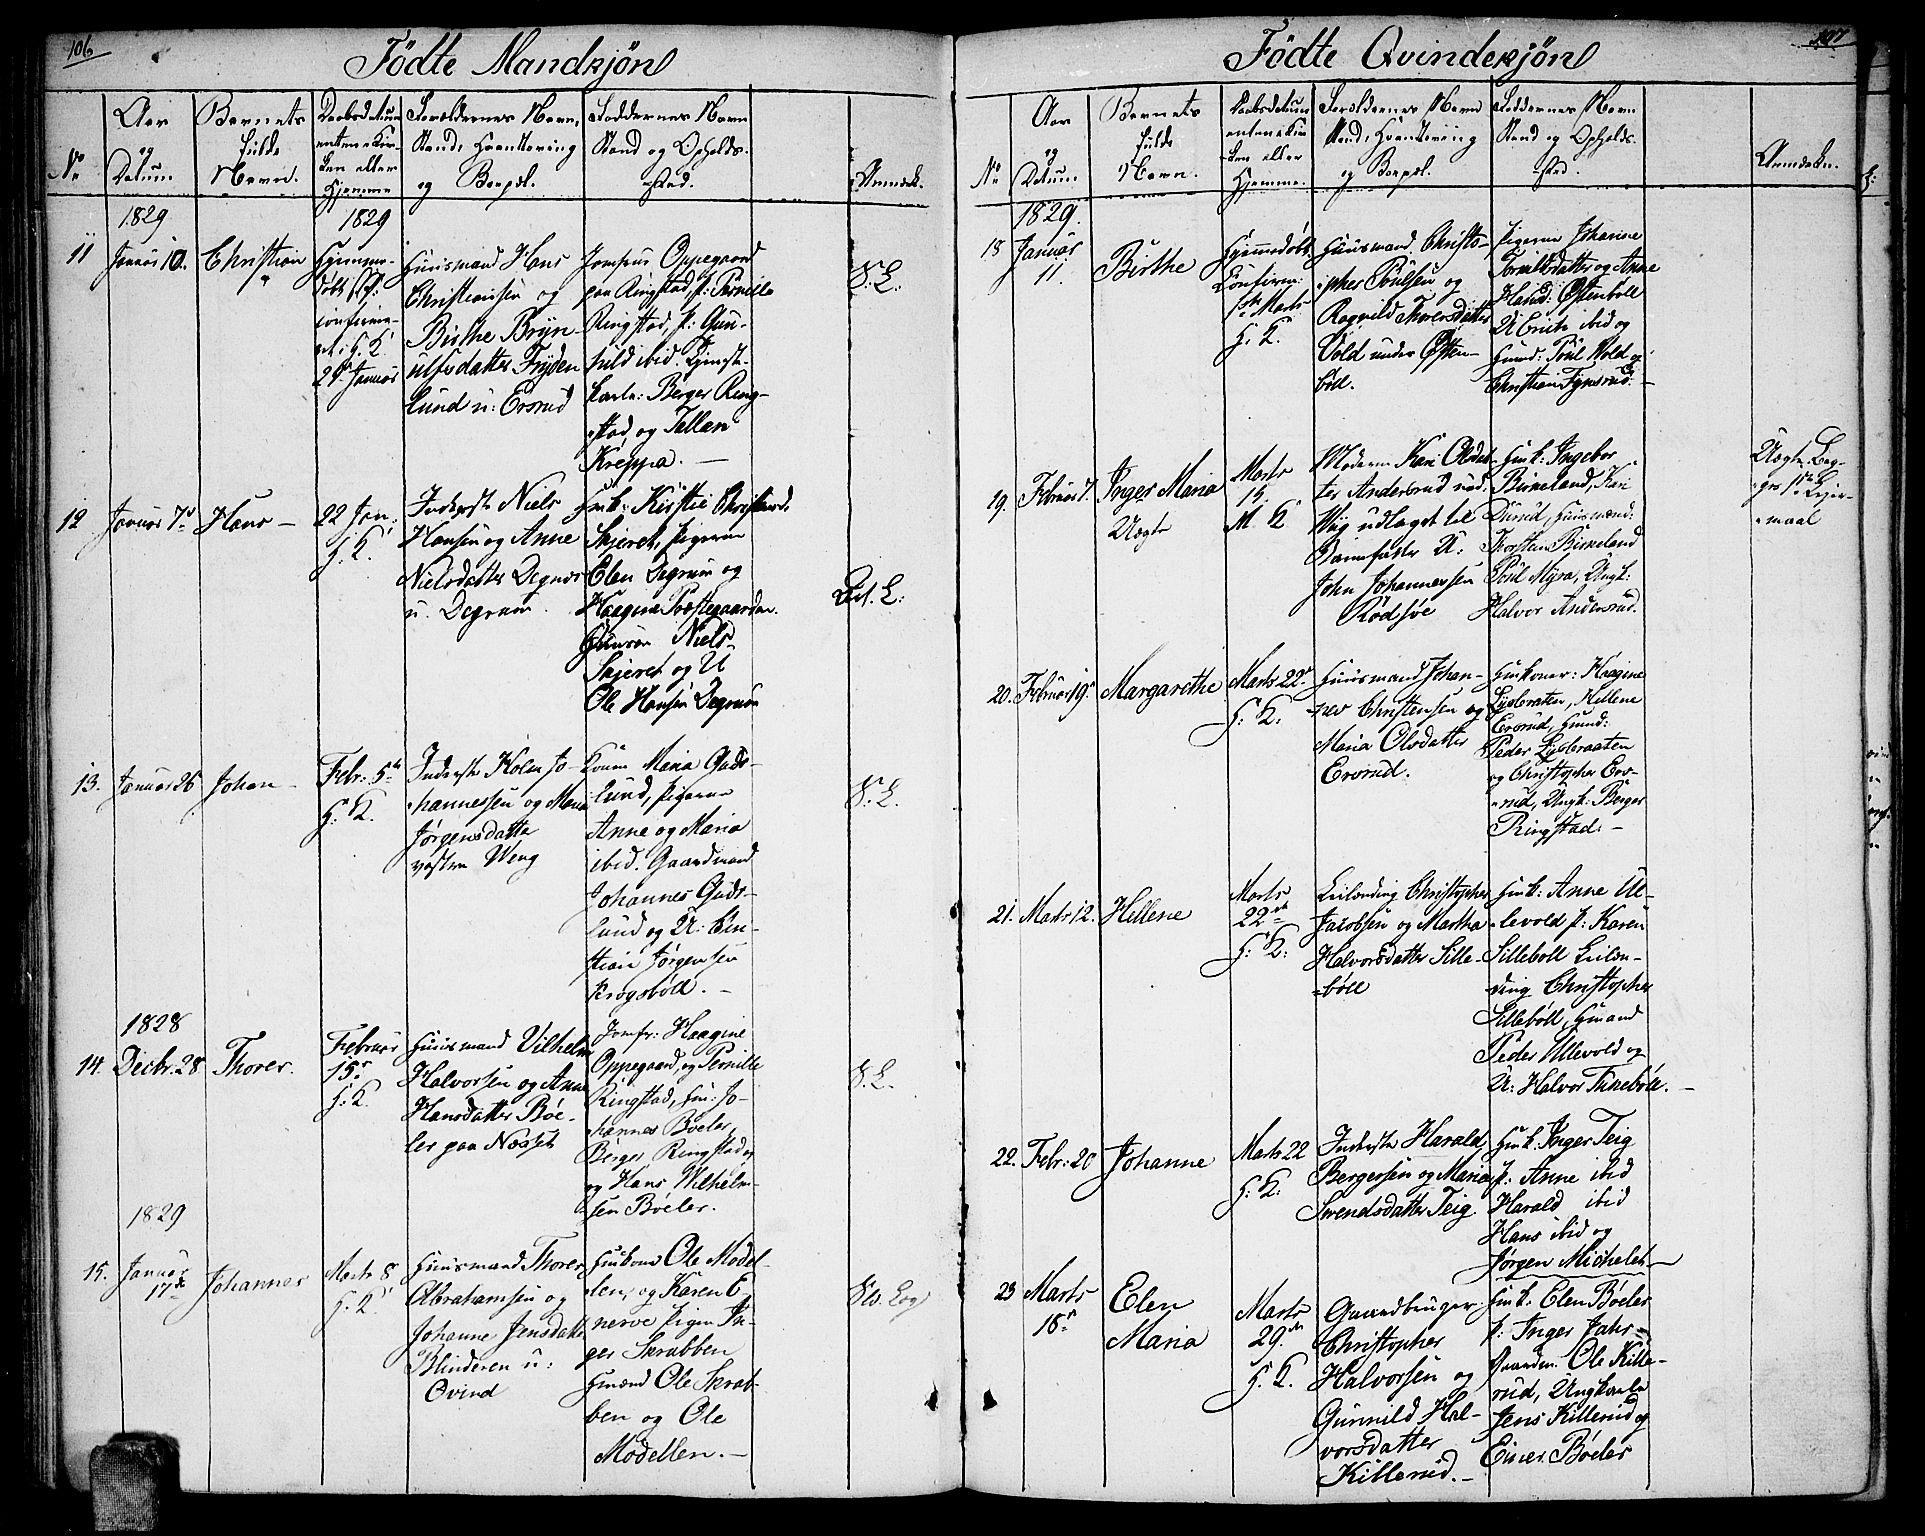 106
Födte Mandkjön
No
Aar og Datum.
Barnets fulde Navn.
Daabsdatum enten i Kirken eller Hjemme
Foræeldrenes Navn, Stand, Haandtering og Bopæl.
Faddernes Navn Stand og Opholdssted.
Anmærk.
1829
1829
11
Januar 10.
Christian
Hjemmedöbt
confirmeret i H. K.
24 Januar
Huusmand Hans
Christiansen og
Birthe Bryn-
ulfsdatter Fryden
lund u: Ersrud
Jomfrue Oppegaard
paa Ringstad, p: Pernille
Ringstad, p: Gun-
hild ibid. Tjenest-
karle: Berger Ring-
stad og Tellan
Kreppa. —
S. L.
12
Januar 7de
Hans —
22 Jan:
H. K.
Inderste Niels
Hansen og Anne
Nielsdatter Degnæs
u. Degrum.
Huk: Kirstie Christiansd.
Sajeret, Pigerne
Elen Degrum og
Haagine Præstegaarden.
Niels
Sajeret og U
Ole Hansen Degrum
13.
Januar 26
Johan —
Febr: 5te
H. K.
Inderste Holm Jo-
hannessen og Maria
Jörgensdatter
vestre Weng
Konen Maria Guds-
lund, Pigerne
Anne og Maria
ibid. Gaardmand
Johannes Guds-
lund og U:
stian Jörgensen
Krogsböll. —
S. L.
1828
14.
Decbr. 28
Thorer.
Februar
15de
H. K.
Huusmand Vilhelm
Halvorsen og Anne
Hansdatter Böe-
ler paa Næset
Jomfr: Haagine
Oppegaard, og Pernille
Ringstad, Hm: Jo-
hannes Böeler,
Berger Ringstad
og Hans Wilhelm-
sen Böeler.
S. L.
1829
15.
Januar
17de
Johannes
Marts 8
H. K.
Huusmand Thorer
Abrahamsen og
Johanne Jensdatter
Blinderen u:
Ovind
Huukone Ole Model-
len, og Karen E
nerve Pigen In-
ger Skrabben
Hmænd Ole Skrab-
ben og Ole
Modellen. —
107
Födte Qvindekjön
No
Aar og Datum.
Barnets fulde Navn.
Daabsdatum enten i Kirken eller Hjemme.
Forældrenes Navn Stand, Haandtering og Bopæl.
Faddernes Navn Stand og Opholdssted.
Anmærkn.
1829.
18
Januar
11.
Birthe
Hjemmedöbt
Confirm:
Marts
H. K.
Huusmand Christo-
pher Poulsen og
Ragnild Thoresdatter
Vold under Östen-
böll.
Pigerne Johanne
og Anne
Östenböll
ibid og
Hmand: Poul Wold og
Christian Fynsrud. —
19.
Februar 7.
Inger Maria
Uægte
Marts
15.
M. K
Moderen Kari Olsdat-
ter Andersrud
Wæg udlagt til
Barnefader U:
John Johannessen
Rødsöe
Huk: Ingebor
Birkeland, Kari
Dusrud, Huusmænd:
Thorsten Birkeland
Poul Myra, Ungk:
Halvor Andersrud.
Uægte Beg-
ges 1ste Leier-
maal
20.
Februar 19de
Margarethe
Marts 22de
H: K:
Huusmand Johan-
nes Christensen og
Maria Olsdatter
Ersrud.
Huukoner: Haagine
Lysbraten, Hellene
Ersrud, Hmd:
Peder Lysbraaten
og Christopher Ers-
rud, Ungk: Berger
Ringstad. —
21.
Marts 12.
Hellene
Marts
22de
H: K:
Leilænding Christopher
Jacobsen og Martha
Halvorsdatter Sille-
böll
Huk: Anne Ul-
levold p: Karen
Silleböll Leilæn-
ding Christopher
Silleböll, Hmand
Peder Ullevold og
U: Halvor Finneböll. —
22.
Febr: 20
Johanne
Marts 22
H: K:
Inderste Harald
Bergersen og Maria
Svendsdatter Teig.
Huk: Inger Teig
p: Anne ibid
Harald ibid
Hans ibid og
Jörgen Michelet —
23
Marts
18de
Elen
Maria
Marts
29de
H. K.
Gaardbruger
Christopher
Halvorsen og
Gunnild Hal-
vorsdatter
Killerud. —
Huk. Elen Böeler
p: Inger Jahr
Gaardm. Ole Kille-
rud, Ungkarle
Jens Killerud og
Einer Böeler